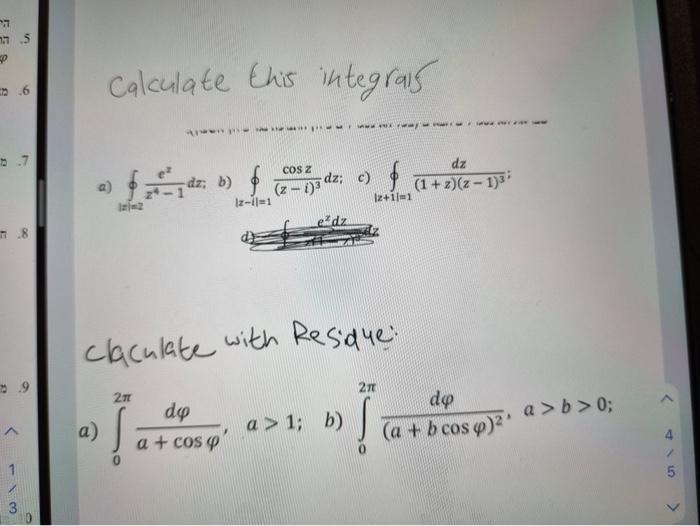 .5
.6
calculate this integrals
.7
a) ∮|z|=2 e^z/(z⁴ − 1) dz; b) ∮|z−i|=1 cos z/(z − i)³ dz; c) ∮|z+1|=1 dz/((1 + z)(z − 1)³);
.8
claculate with Residue:
.9
a) ∫₀^2π dφ/(a + cos φ), a > 1; b) ∫₀^2π dφ/(a + b cos φ)², a > b > 0;
1
/
3
4
/
5